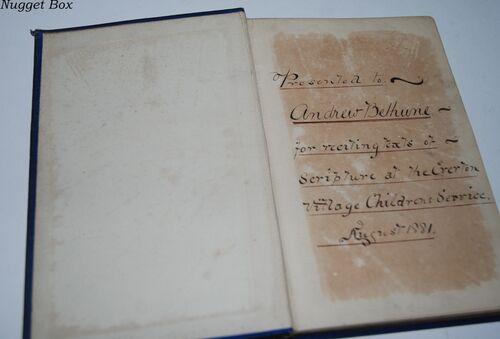 Nugget Box
Presented to
Andrew Bethune
for reciting texts of
Scripture at the Everton
Village Childrens Service.
August 1881.